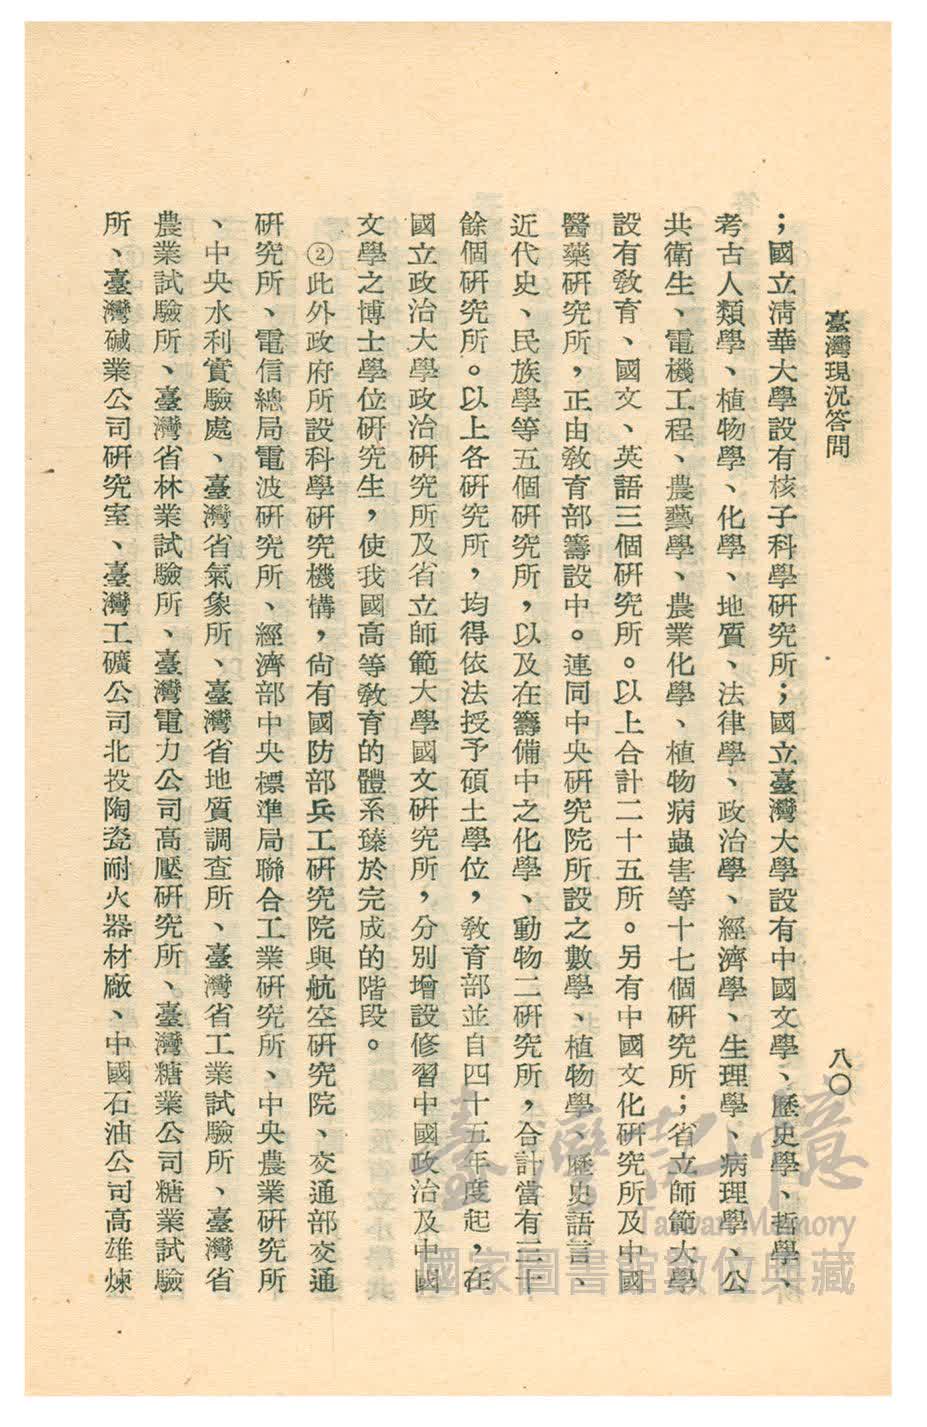 臺灣現況答問
八〇
；國立淸華大學設有核子科學硏究所；國立臺灣大學設有中國文學、歷史學、哲學、
考古人類學、植物學、化學、地質、法律學、政治學、經濟學、生理學、病理學、公
共衛生、電機工程、農藝學、農業化學、植物病蟲害等十七個硏究所；省立師範大學
設有敎育、國文、英語三個硏究所。以上合計二十五所。另有中國文化硏究所及中國
醫藥硏究所，正由敎育部籌設中。連同中央硏究院所設之數學、植物學、歷史語言、
近代史、民族學等五個硏究所，以及在籌備中之化學、動物二硏究所，合計當有三十
餘個硏究所。以上各硏究所，均得依法授予碩士學位，敎育部並自四十五年度起，在
國立政治大學政治硏究所及省立師範大學國文硏究所，分別增設修習中國政治及中國
文學之博士學位硏究生，使我國高等敎育的體系臻於完成的階段。
②此外政府所設科學硏究機構，尙有國防部兵工硏究院與航空硏究院、交通部交通
硏究所、電信總局電波硏究所、經濟部中央標準局聯合工業硏究所、中央農業硏究所
、中央水利實驗處、臺灣省氣象所、臺灣省地質調查所、臺灣省工業試驗所、臺灣省
農業試驗所、臺灣省林業試驗所、臺灣電力公司高壓硏究所、臺灣糖業公司糖業試驗
所、臺灣碱業公司硏究室、臺灣工礦公司北投陶瓷耐火器材廠、中國石油公司高雄煉
臺灣記憶
Taiwan Memory
國家圖書館數位典藏